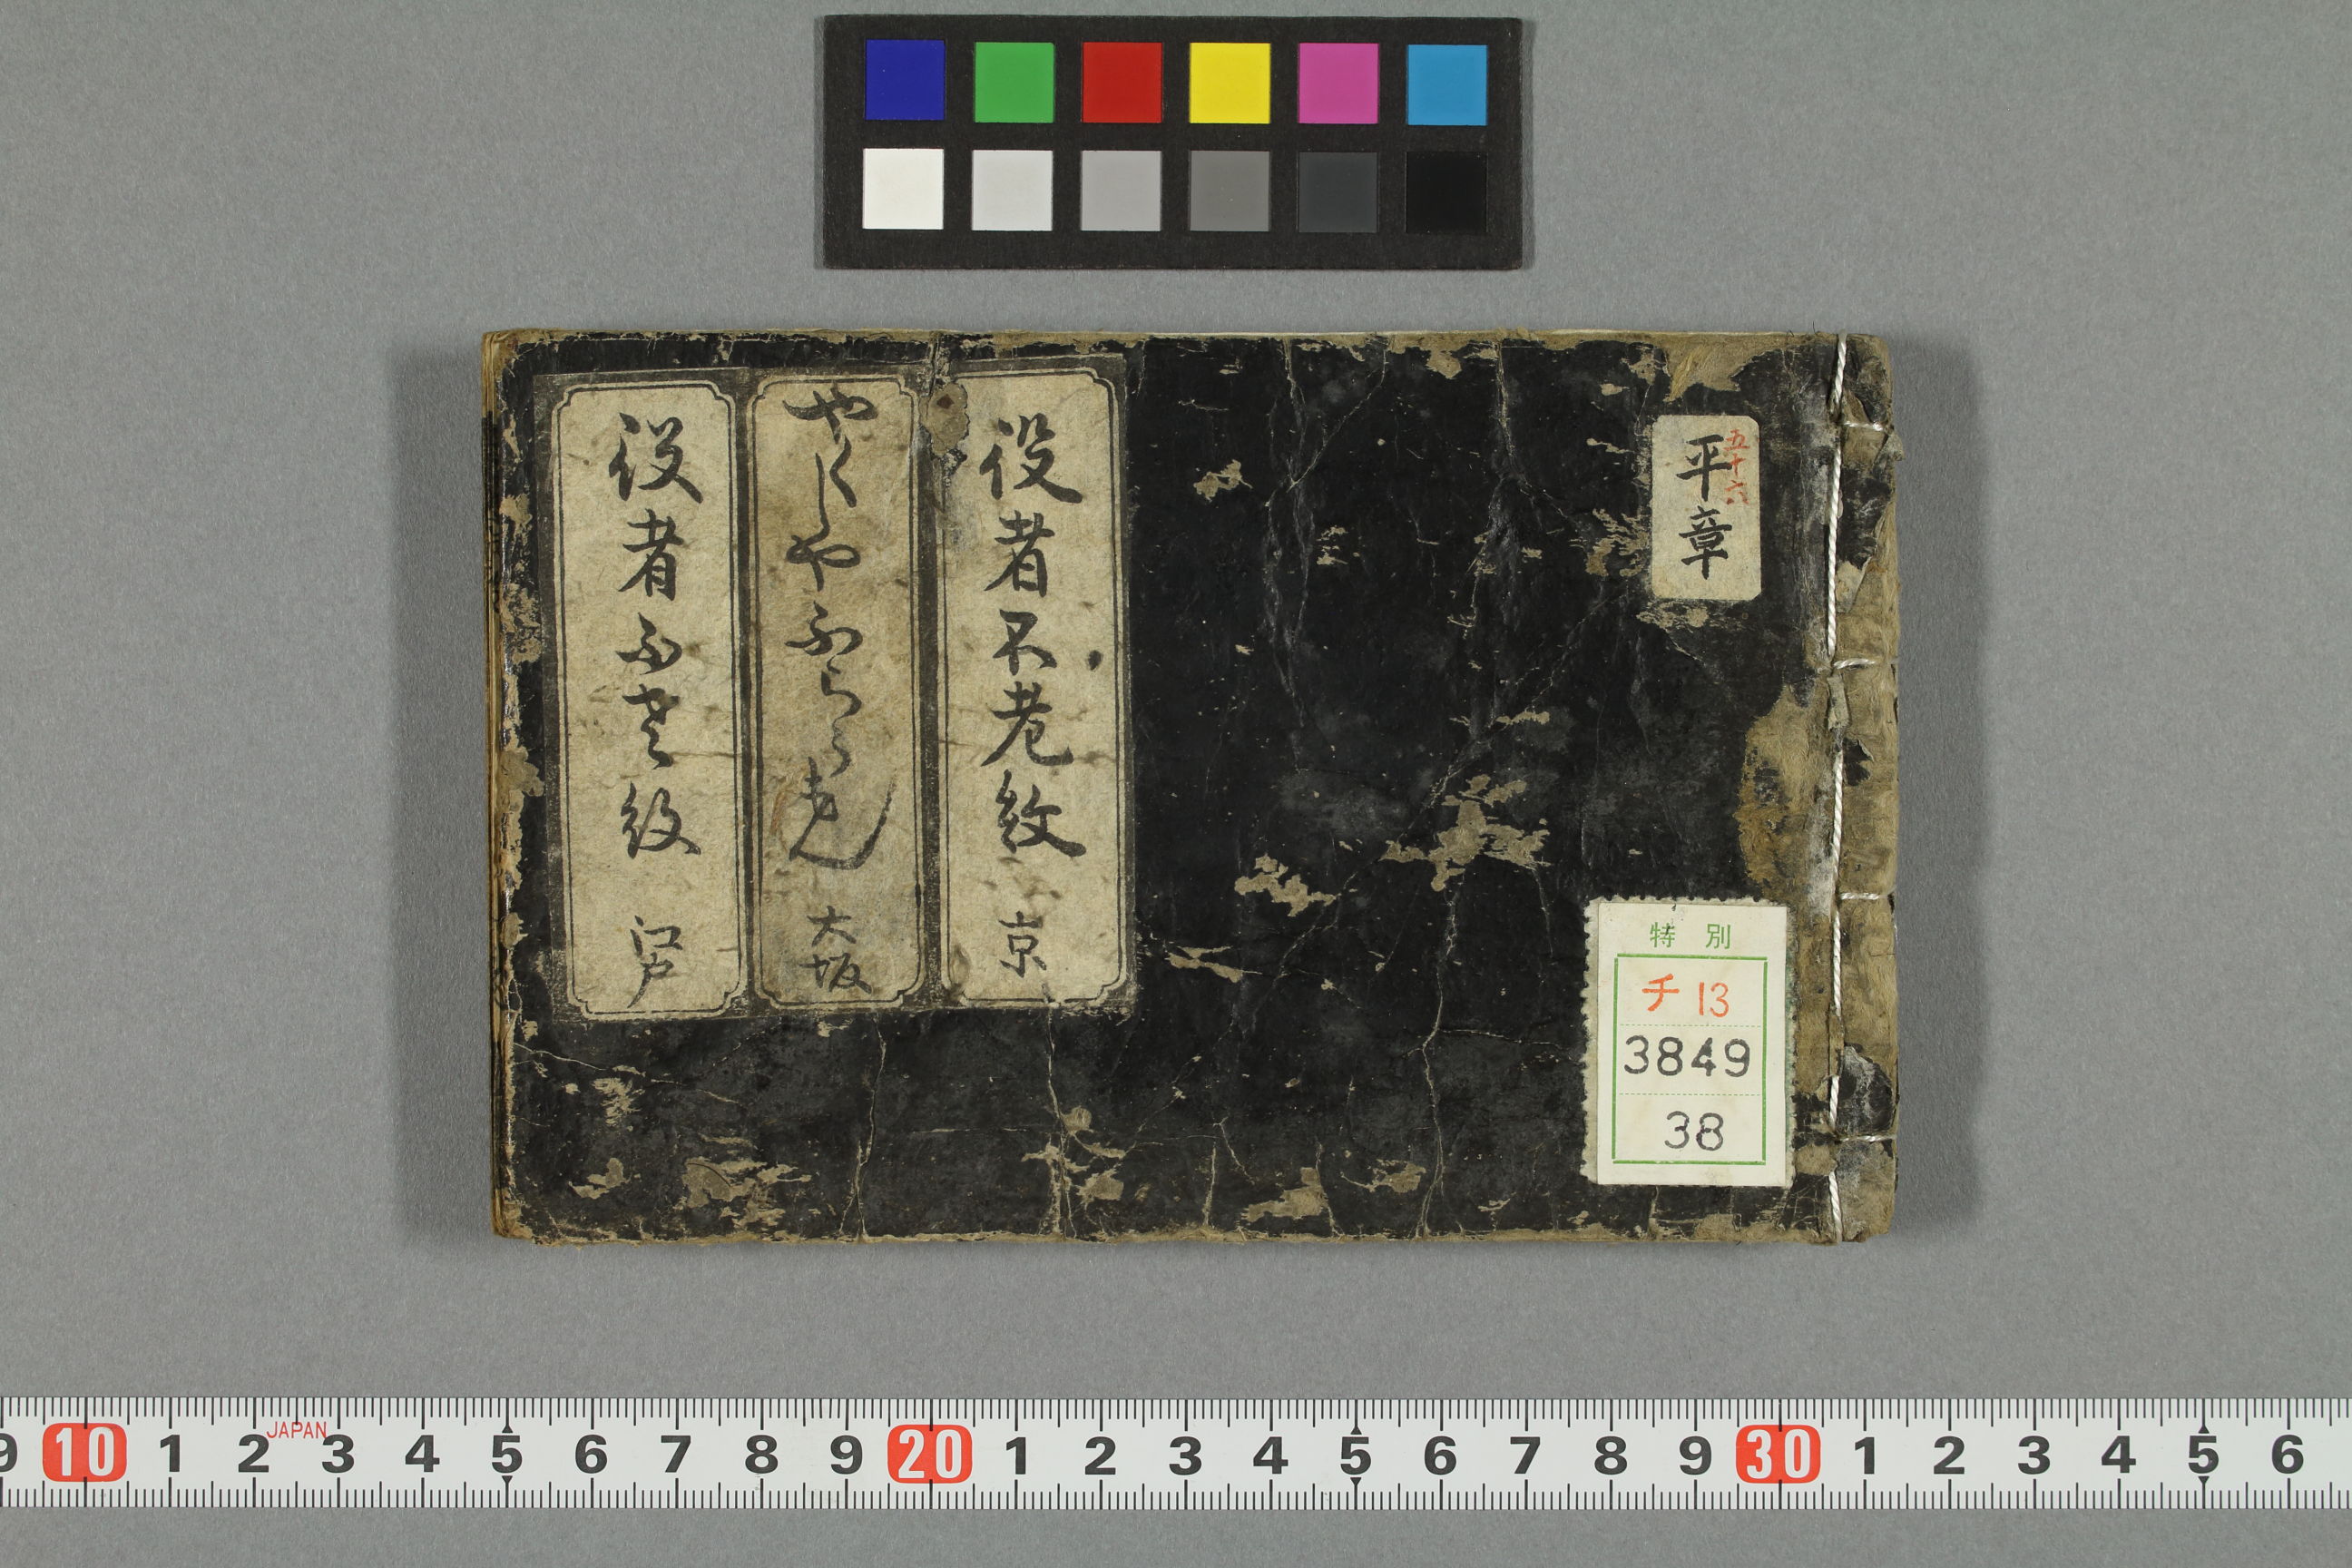 五十六
平章
役者不老紋 京
やくしやふらうもん 大坂
役者不老紋 江戸
特別
チ 13
3849
38
JAPAN
9 10 1 2 3 4 5 6 7 8 9 20 1 2 3 4 5 6 7 8 9 30 1 2 3 4 5 6